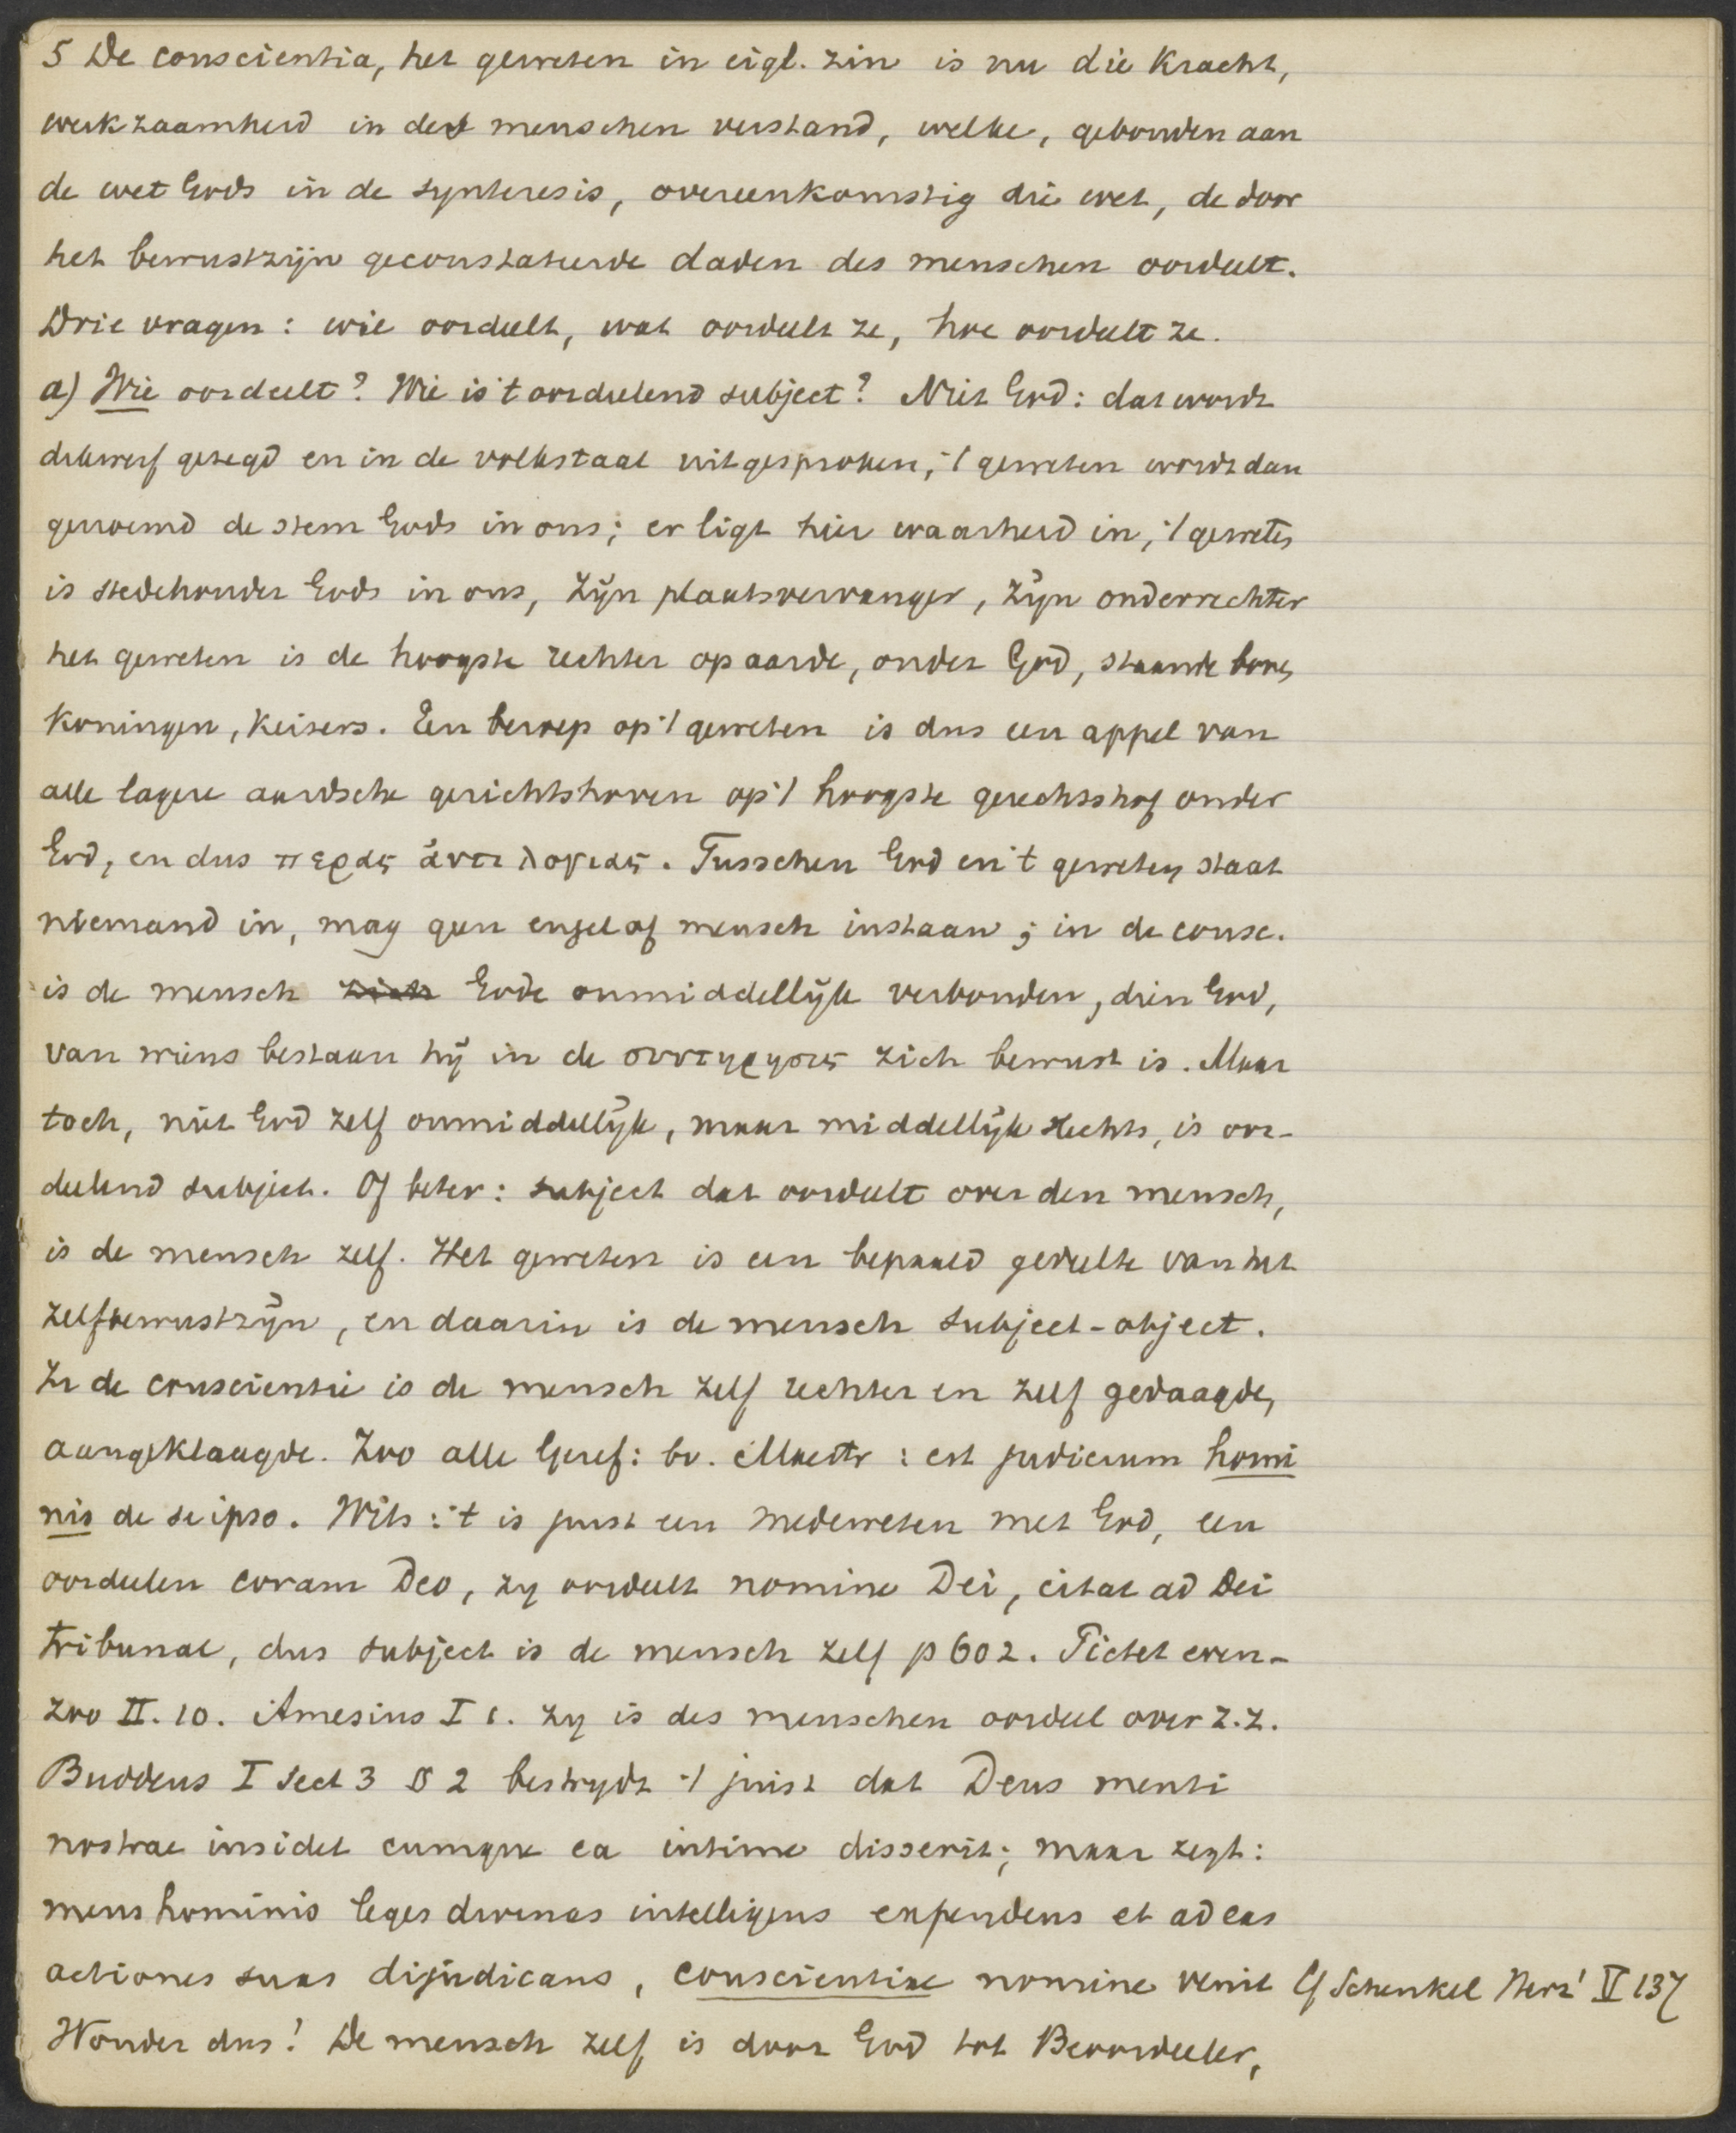 5 De conscientia, het geweten in eigl. zin is nu die kracht,
werkzaamheid in des menschen verstand, welke, gebonden aan
de wet Gods in de synteresis, overeenkomstig die wet, de door
het bewustzijn geconstateerde daden des menschen oordeelt.
Drie vragen: wie oordeelt, wat oordeelt ze, hoe oordeelt ze.
a) Wie oordeelt? Wie is 't oordeelend subject? Niet God: dat wordt
dikwerf gezegd en in de volkstaal uitgesproken, 't geweten wordt dan
genoemd de stem Gods in ons; er ligt hier waarheid in, 't geweten
is stedehouder Gods in ons, zijn plaatsvervanger, zijn onderrechter
het geweten is de hoogste rechter op aarde, onder God, staande boven
koningen, keizers. Een beroep op 't geweten is dus een appel van
alle lagere aardsche gerichtshoven op 't hoogste gerechtshof onder
God, en dus περας ἀντιλογιας. Tusschen God en 't geweten staat
niemand in, mag geen engel of mensch instaan; in de consc.
is de mensch zich Gode onmiddellijk verbonden, dien God,
van wiens bestaan hij in de συντηρησις zich bewust is. Maar
toch, niet God zelf onmiddellijk, maar middellijk slechts, is oor-
deelend subject. Of beter: subject dat oordeelt over den mensch,
is de mensch zelf. Het geweten is een bepaald gedeelte van het
zelfbewustzijn, en daarin is de mensch subject-object.
In de conscientie is de mensch zelf rechter en zelf gedaagde,
aangeklaagde. Zoo alle Geref: bv. Mastr: est judicium homi
nis de se ipso. Wits: 't is juist een medeweten met God, een
oordeelen coram Deo, zy oordeelt nomine Dei, citat ad Dei
tribunal, dus subject is de mensch zelf p 602. Pictet even-
zoo II. 10. Amesius I 1. zy is des menschen oordeel over z.z.
Buddeus I Sect 3 § 2 bestrydt 't juist dat Deus menti
nostrae insidet cumque ea intime disserit; maar zegt:
mens hominis leges divinas intelligens expendens et ad eas
actiones suas dijudicans, conscientiae nomine venit Cf Schenkel Herz' V 137
Wonder dus! De mensch zelf is door God tot Beoordeeler,